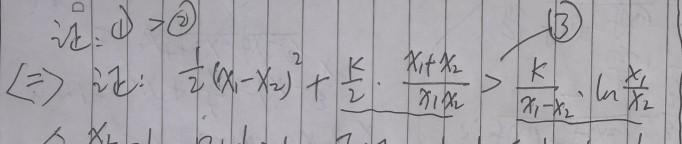 证: ① > ②
③
<=> 证: 1/2 (x₁-x₂)² + K/2 · (x₁+x₂)/(x₁x₂) > K/(x₁-x₂) · ln x₁/x₂